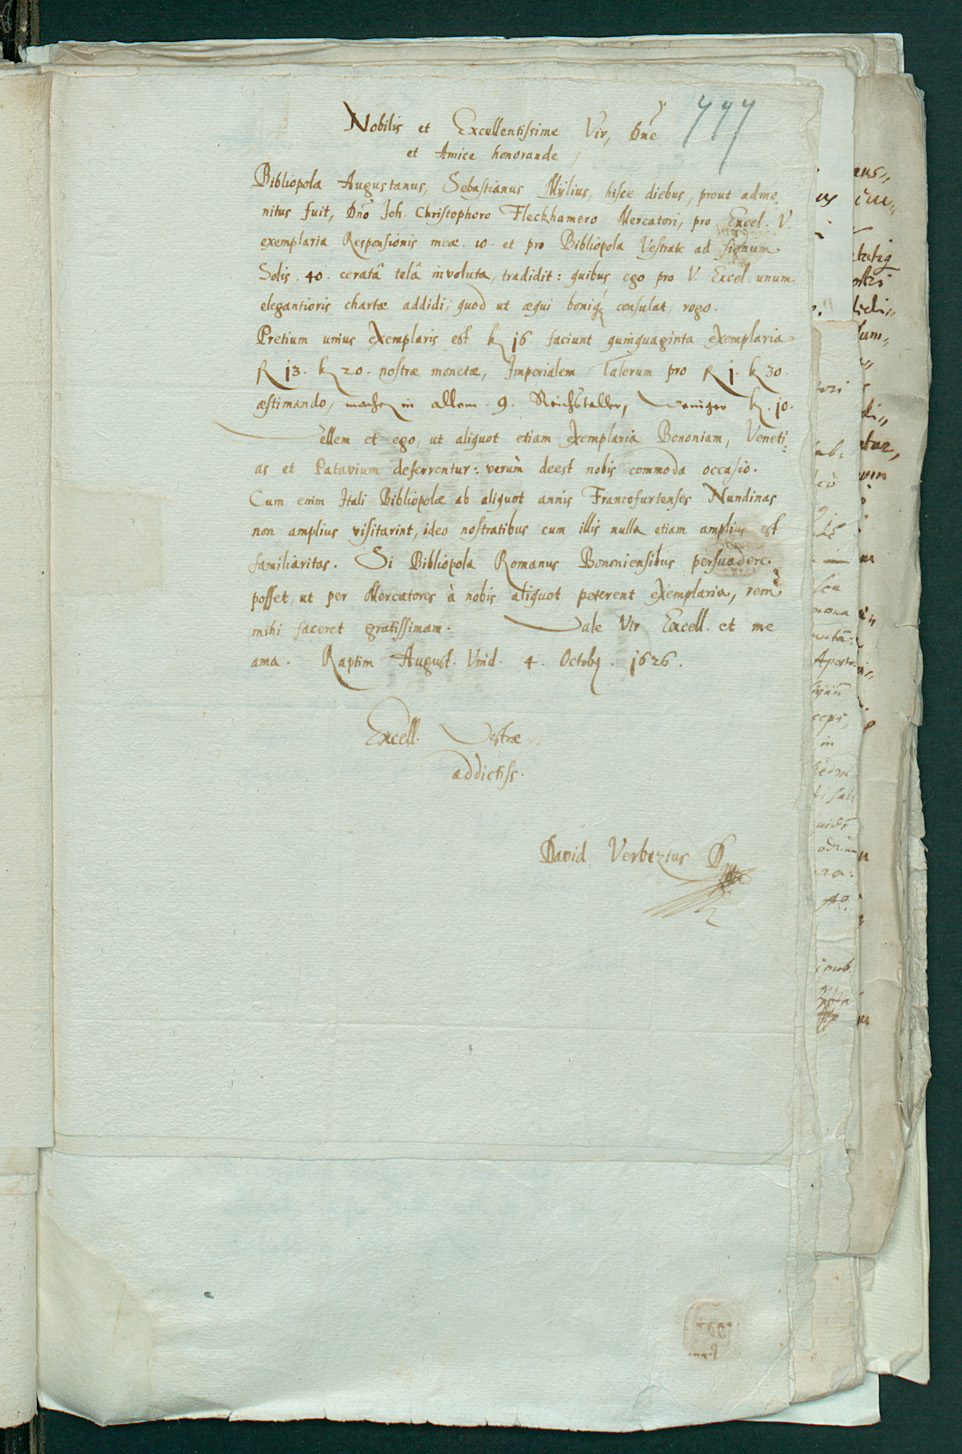 777
Nobilis et Excellentissime Vir, Dne
et Amice honorande,
Bibliopola Augustanus, Sebastianus Mylius, hisce diebus, prout admo-
nitus fuit, Dno Joh. Christophoro Fleckhamero Mercatori, pro Excel. V.
exemplaria Responsionis meæ 10. et pro Bibliopola Vestrate ad signum
Solis 40. ceratâ telâ involuta, tradidit: quibus ego pro V. Excel. unum
elegantioris chartæ addidi; quod ut æqui boniq; consulat, rogo.
Pretium unius exemplaris est k 16. faciunt quinquaginta exemplaria
R 13. k 20. nostræ monetæ, Imperialem Talerum pro R 1. k 30.
æstimando, machen in allem 9. Reichstaller, weniger k. 10.
Vellem et ego, ut aliquot etiam exemplaria Bononiam, Veneti-
as et Patavium deferrentur: verùm deest nobis commoda occasio.
Cum enim Itali Bibliopolæ ab aliquot annis Francofurtenses Nundinas
non amplius visitarint, ideo nostratibus cum illis nulla etiam amplius est
familiaritas. Si Bibliopola Romanus Bononiensibus persuadere
posset, ut per Mercatores à nobis aliquot peterent exemplaria, rem
mihi faceret gratissimam. Vale Vir Excell. et me
ama. Raptim August. Vind. 4. Octob. 1626.
Excell. Vestræ
addictiss.
David Verbezius D